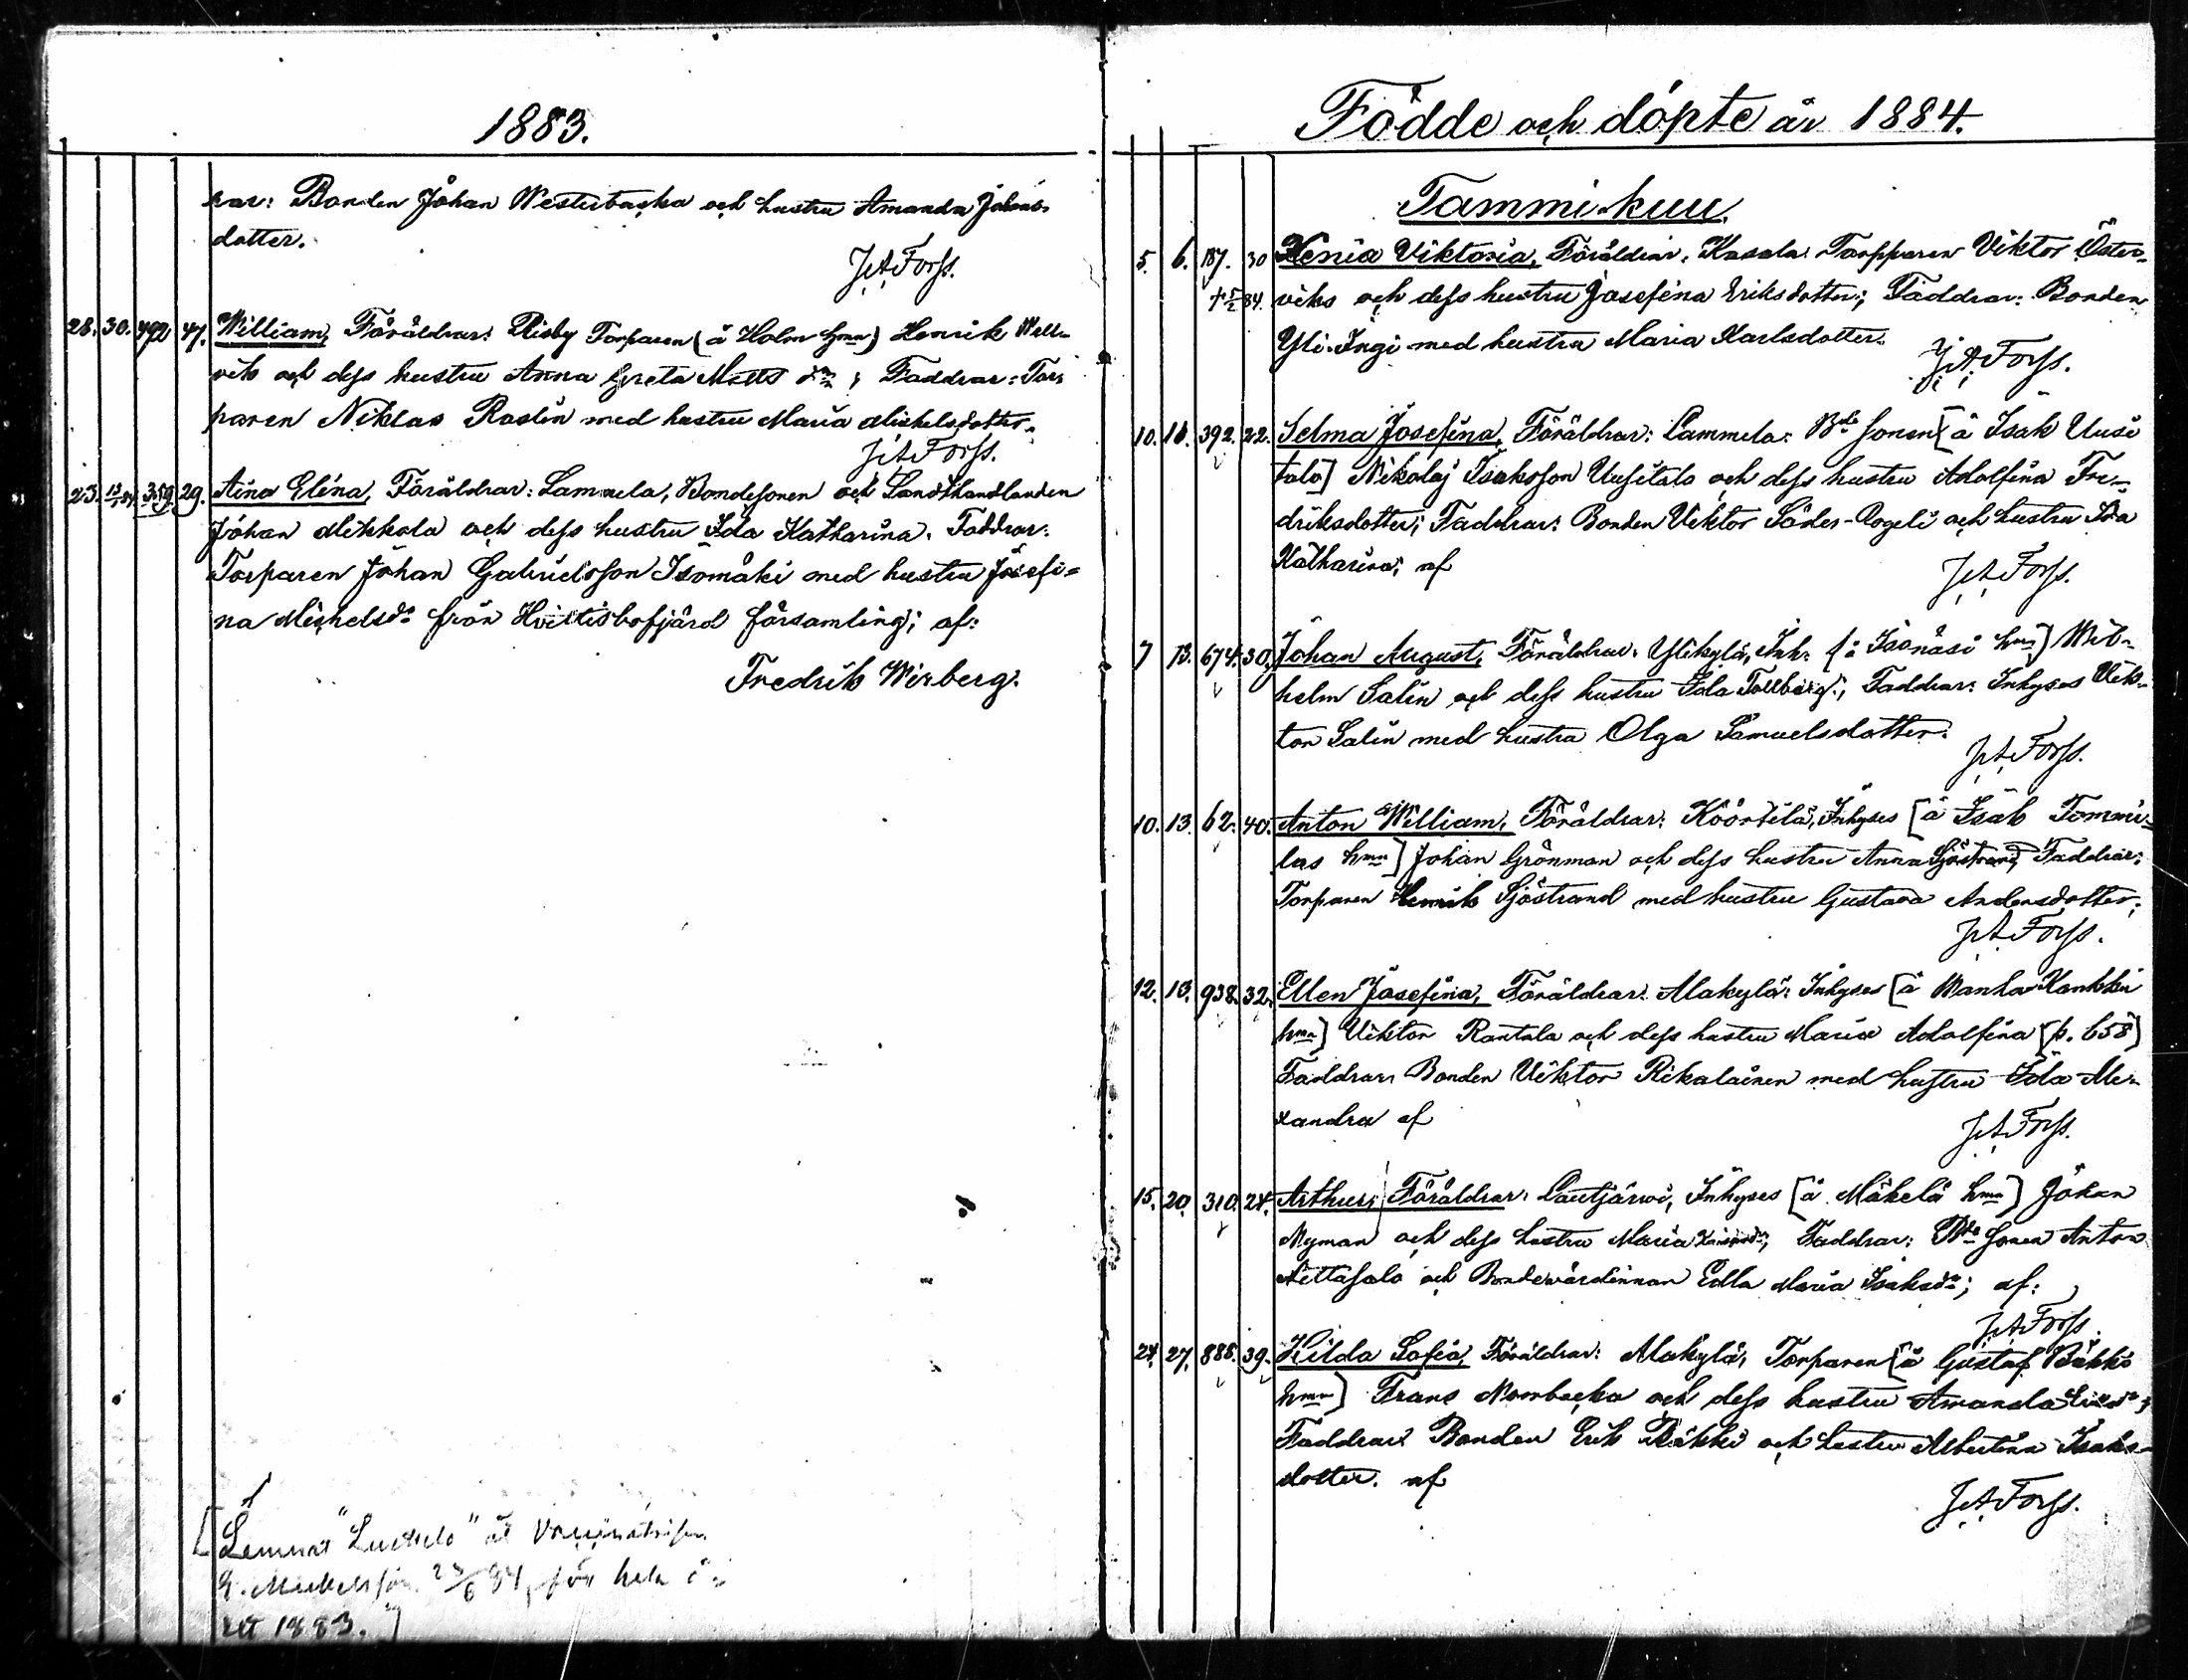 1883.
rar: Bonden Johan Westerbacka och hustru Amanda Johans-
dotter.
J. A. Forss.
28. 30. 492 47. William, Föräldrar: Risby Torparen (å Holm hmn) Henrik Well-
vik och dess hustru Anna Greta Matts dr; Faddrar: Tor-
paren Niklas Roslin med hustru Maria Michelsdotter.
J. A. Forss.
23. 359. 29. Aina Elina, Föräldrar: Lammela, Bondesonen och Landthandlanden
Johan Mikkola och dess hustru Ida Katharina. Faddrar:
Torparen Johan Gabrielsson Isomäki med hustru Josefi-
na Michelsdr från Hvittisbofjärd församling; af:
Fredrik Wirberg.
[Lemnat åt
23/6 84, för hela å-
ret 1883.]
Födde och döpte år 1884.
Tammikuu.
5. 6. 187. 30 Xenia Viktoria, Föräldrar: Kasala Torpparen Viktor Öster-
† 5/2 84. viks och dess hustru Josefina Eriksdotter; Faddrar: Bonden
Yli-Ingi med hustru Maria Karlsdotter.
J. A. Forss.
10. 16. 392. 22. Selma Josefina, Föräldrar: Lammela: Bde sonen [å Isak Uusi
talo] Nikolaj Isaksson Uusitalo och dess hustru Adolfina Fre-
driksdotter; Faddrar: Bonden Viktor Södes-Rogeli och hustru Ida
Katharina; af
J. A. Forss.
7 13. 674. 30. Johan August, Föräldrar: Ylikylä, Inh. [å Isonäsi hmn] Wil-
helm Salin och dess hustru Ida Tallberg; Faddrar: Inhyses Vik-
tor Salin med hustru Olga Samuelsdotter.
J. A. Forss.
10. 13. 62. 40. Anton William, Föräldrar: Köörtilä, Inhyses [å Isak Tommi-
las hmn] Johan Grönman och dess hustru Anna Sjöstrand, Faddrar:
Torparen Henrik Sjöstrand med hustru Gustava Andersdotter;
J. A. Forss.
12. 13. 938. 32. Ellen Josefina, Föräldrar: Alakylä: Inhyses [å Wanha Kankku
hmn] Viktor Rantala och dess hustru Maria Adolfina [p. 658]
Faddrar: Bonden Viktor Rikalainen med hustru Ida Ale-
xandra af
J. A. Forss.
15. 20. 310. 24. Arthur, Föräldrar: Lautjärwi, Inhyses [å Mäkelä hmn] Johan
Nyman och dess hustru Maria Faddrar: Bde sonen Anton
Aittasalo och Bondewärdinnan Edla Maria Isaksdr; af:
J. A. Forss.
24. 27. 888. 39. Hilda Sofia, Föräldrar: Alakylä, Torparen [å Gustaf Bäkki
hmn] Frans Norrbacka och dess hustru Amanda
Faddrar: Bonden Erik Bäkki och hustru Albertina Isaks-
dotter. af
J. A. Forss.